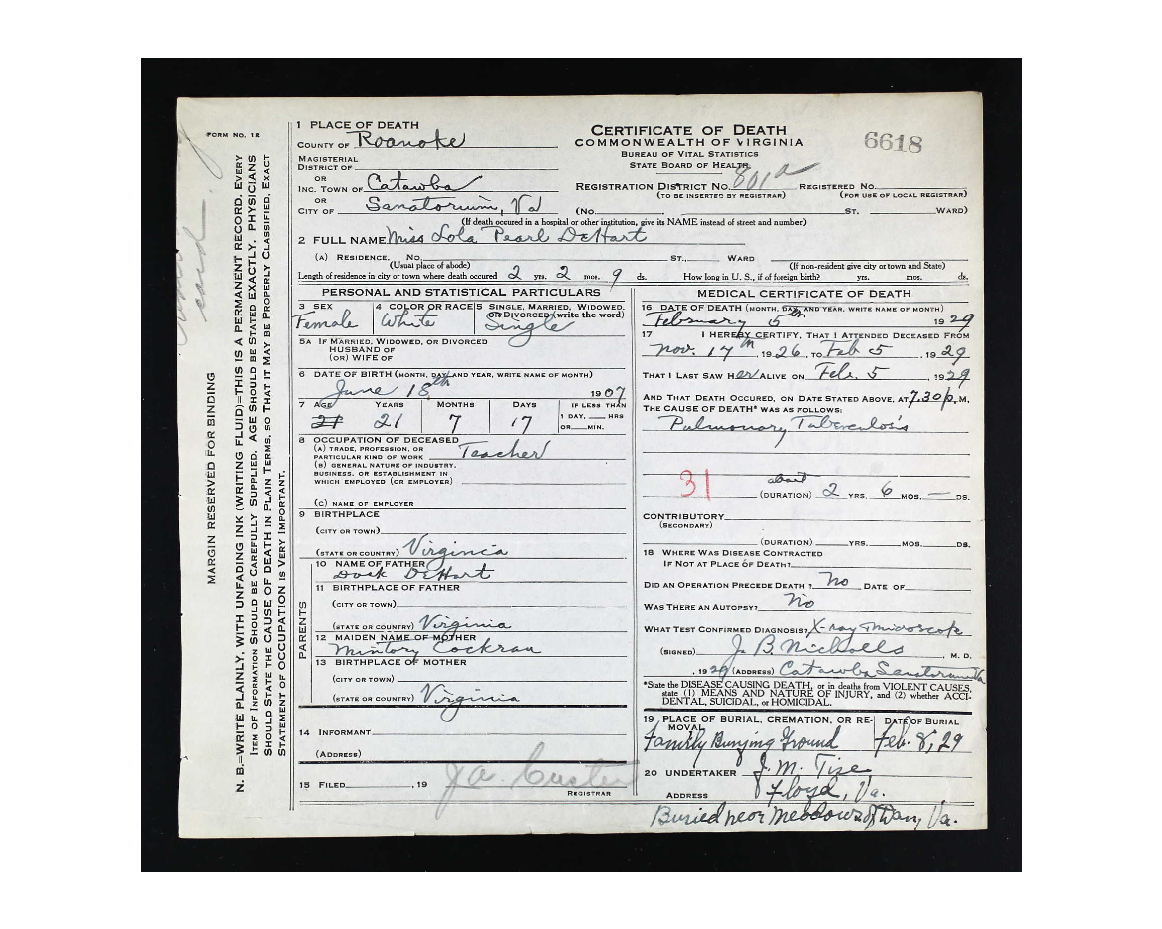 FORM NO. 12
MARGIN RESERVED FOR BINDING
N. B.=WRITE PLAINLY, WITH UNFADING INK (WRITING FLUID)=THIS IS A PERMANENT RECORD. EVERY
ITEM OF INFORMATION SHOULD BE CAREFULLY SUPPLIED. AGE SHOULD BE STATED EXACTLY. PHYSICIANS
SHOULD STATE THE CAUSE OF DEATH IN PLAIN TERMS, SO THAT IT MAY BE PROPERLY CLASSIFIED. EXACT
STATEMENT OF OCCUPATION IS VERY IMPORTANT.
card
CERTIFICATE OF DEATH
COMMONWEALTH OF VIRGINIA
BUREAU OF VITAL STATISTICS
STATE BOARD OF HEALTH
6618
1 PLACE OF DEATH
COUNTY OF Roanoke
MAGISTERIAL
DISTRICT OF
OR
INC. TOWN OF Catawba
OR
CITY OF Sanatorium, Va
REGISTRATION DISTRICT NO. 801a REGISTERED NO.
(TO BE INSERTED BY REGISTRAR) (FOR USE OF LOCAL REGISTRAR)
(NO. ST. WARD)
(If death occured in a hospital or other institution, give its NAME instead of street and number)
2 FULL NAME Miss Lola Pearl DeHart
(A) RESIDENCE. No. ST., WARD
(Usual place of abode) (If non-resident give city or town and State)
Length of residence in city or town where death occured 2 yrs. 2 mos. 9 ds. How long in U. S., if of foreign birth? yrs. mos. ds.
PERSONAL AND STATISTICAL PARTICULARS
3 SEX Female
4 COLOR OR RACE White
5 SINGLE, MARRIED, WIDOWED
OR DIVORCED (write the word)
Single
5A IF MARRIED, WIDOWED, OR DIVORCED
HUSBAND OF
(OR) WIFE OF
6 DATE OF BIRTH (MONTH, DAY, AND YEAR, WRITE NAME OF MONTH)
June 18th 1907
7 AGE YEARS MONTHS DAYS IF LESS THAN
1 DAY, HRS
OR MIN.
21 21 7 17
8 OCCUPATION OF DECEASED
(A) TRADE, PROFESSION, OR
PARTICULAR KIND OF WORK Teacher
(B) GENERAL NATURE OF INDUSTRY,
BUSINESS, OR ESTABLISHMENT IN
WHICH EMPLOYED (OR EMPLOYER)
(C) NAME OF EMPLOYER
9 BIRTHPLACE
(CITY OR TOWN)
(STATE OR COUNTRY) Virginia
PARENTS
10 NAME OF FATHER
Dock DeHart
11 BIRTHPLACE OF FATHER
(CITY OR TOWN)
(STATE OR COUNTRY) Virginia
12 MAIDEN NAME OF MOTHER
Mintory Cockran
13 BIRTHPLACE OF MOTHER
(CITY OR TOWN)
(STATE OR COUNTRY) Virginia
14 INFORMANT
(ADDRESS)
15 FILED , 19 J A. Custer
REGISTRAR
MEDICAL CERTIFICATE OF DEATH
16 DATE OF DEATH (MONTH, DAY, AND YEAR, WRITE NAME OF MONTH)
February 5th 1929
17 I HEREBY CERTIFY, THAT I ATTENDED DECEASED FROM
Nov. 17th, 1926, TO Feb 5, 1929
THAT I LAST SAW Her ALIVE ON Feb. 5 1929
AND THAT DEATH OCCURRED, ON DATE STATED ABOVE, AT 7.30 p. M.
THE CAUSE OF DEATH* WAS AS FOLLOWS:
Pulmonary Tuberculosis
31 about
(DURATION) 2 YRS. 6 MOS. — DS.
CONTRIBUTORY
(SECONDARY)
(DURATION) YRS. MOS. DS.
18 WHERE WAS DISEASE CONTRACTED
IF NOT AT PLACE OF DEATH?
DID AN OPERATION PRECEDE DEATH? No DATE OF
WAS THERE AN AUTOPSY? No
WHAT TEST CONFIRMED DIAGNOSIS? X-ray + microscope
(SIGNED) J. B. Nicholls M. D.
, 1929 (ADDRESS) Catawba Sanatorium Va
*State the DISEASE CAUSING DEATH, or in deaths from VIOLENT CAUSES,
state (1) MEANS AND NATURE OF INJURY, and (2) whether ACCI-
DENTAL, SUICIDAL, or HOMICIDAL.
19 PLACE OF BURIAL, CREMATION, OR RE-
MOVAL
DATE OF BURIAL
Family Burying Ground Feb. 8, 29
20 UNDERTAKER J. M. Tise
ADDRESS Floyd, Va.
Buried near Meadows of Dan, Va.